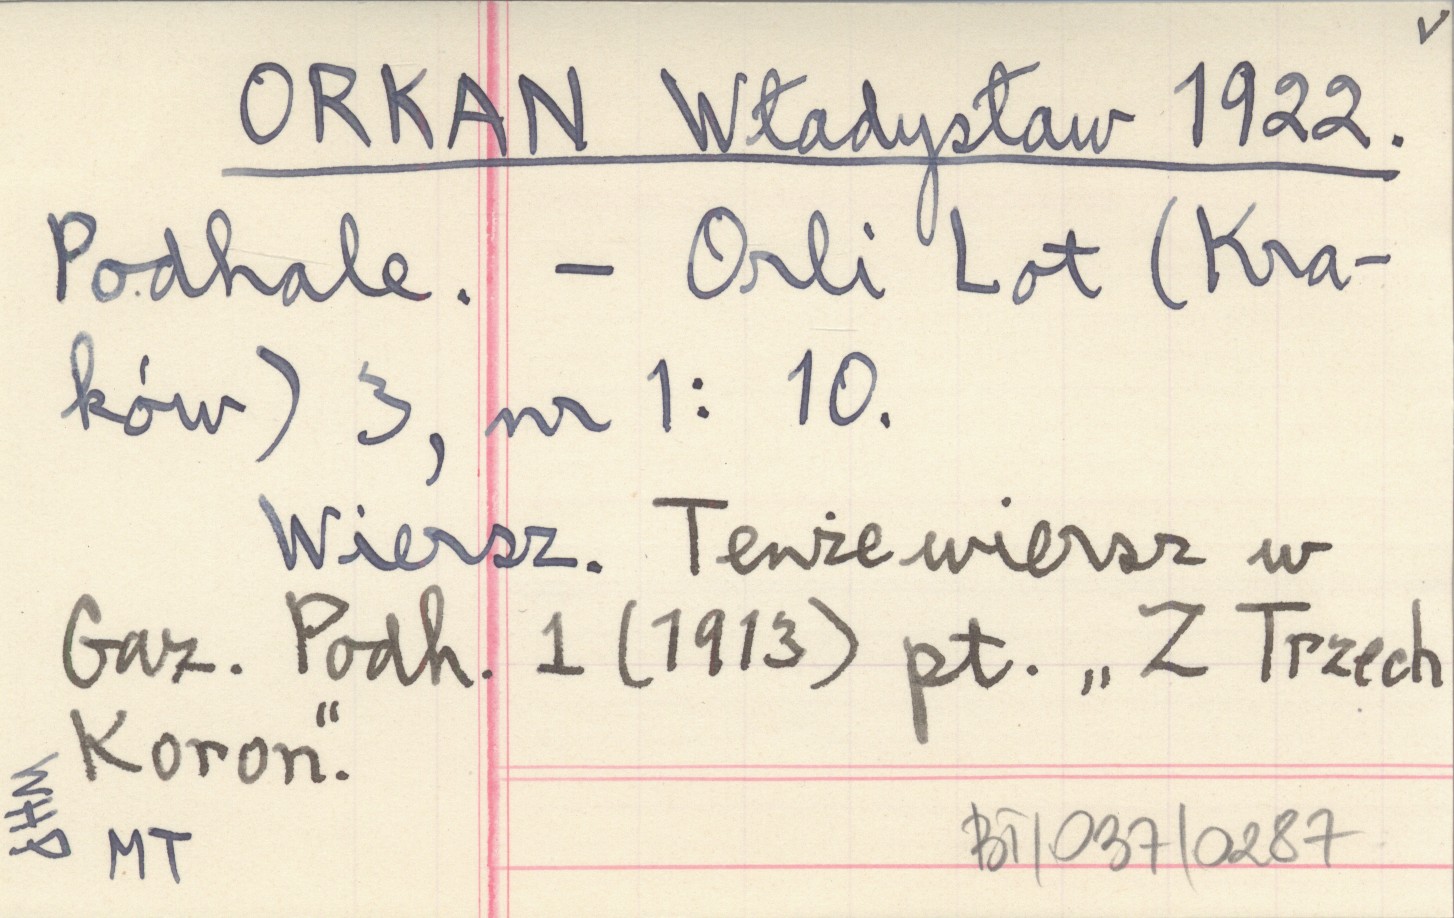 v
ORKAN Władysław 1922.
Podhale. – Orli Lot (Kra-
ków) 3, nr 1: 10.
Wiersz. Tenże wiersz w
Gaz. Podh. 1 (1913) pt. „Z Trzech
Koron“.
MT
BT/037/0287